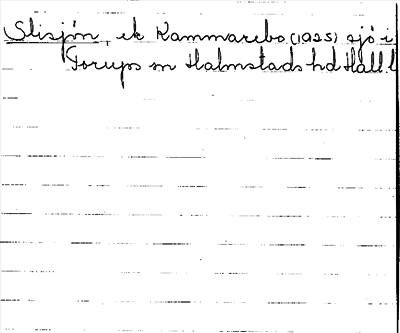 Slisjön, ek Kammarebo (1925) sjö i
Torups sn Halmstads hd Hall. l